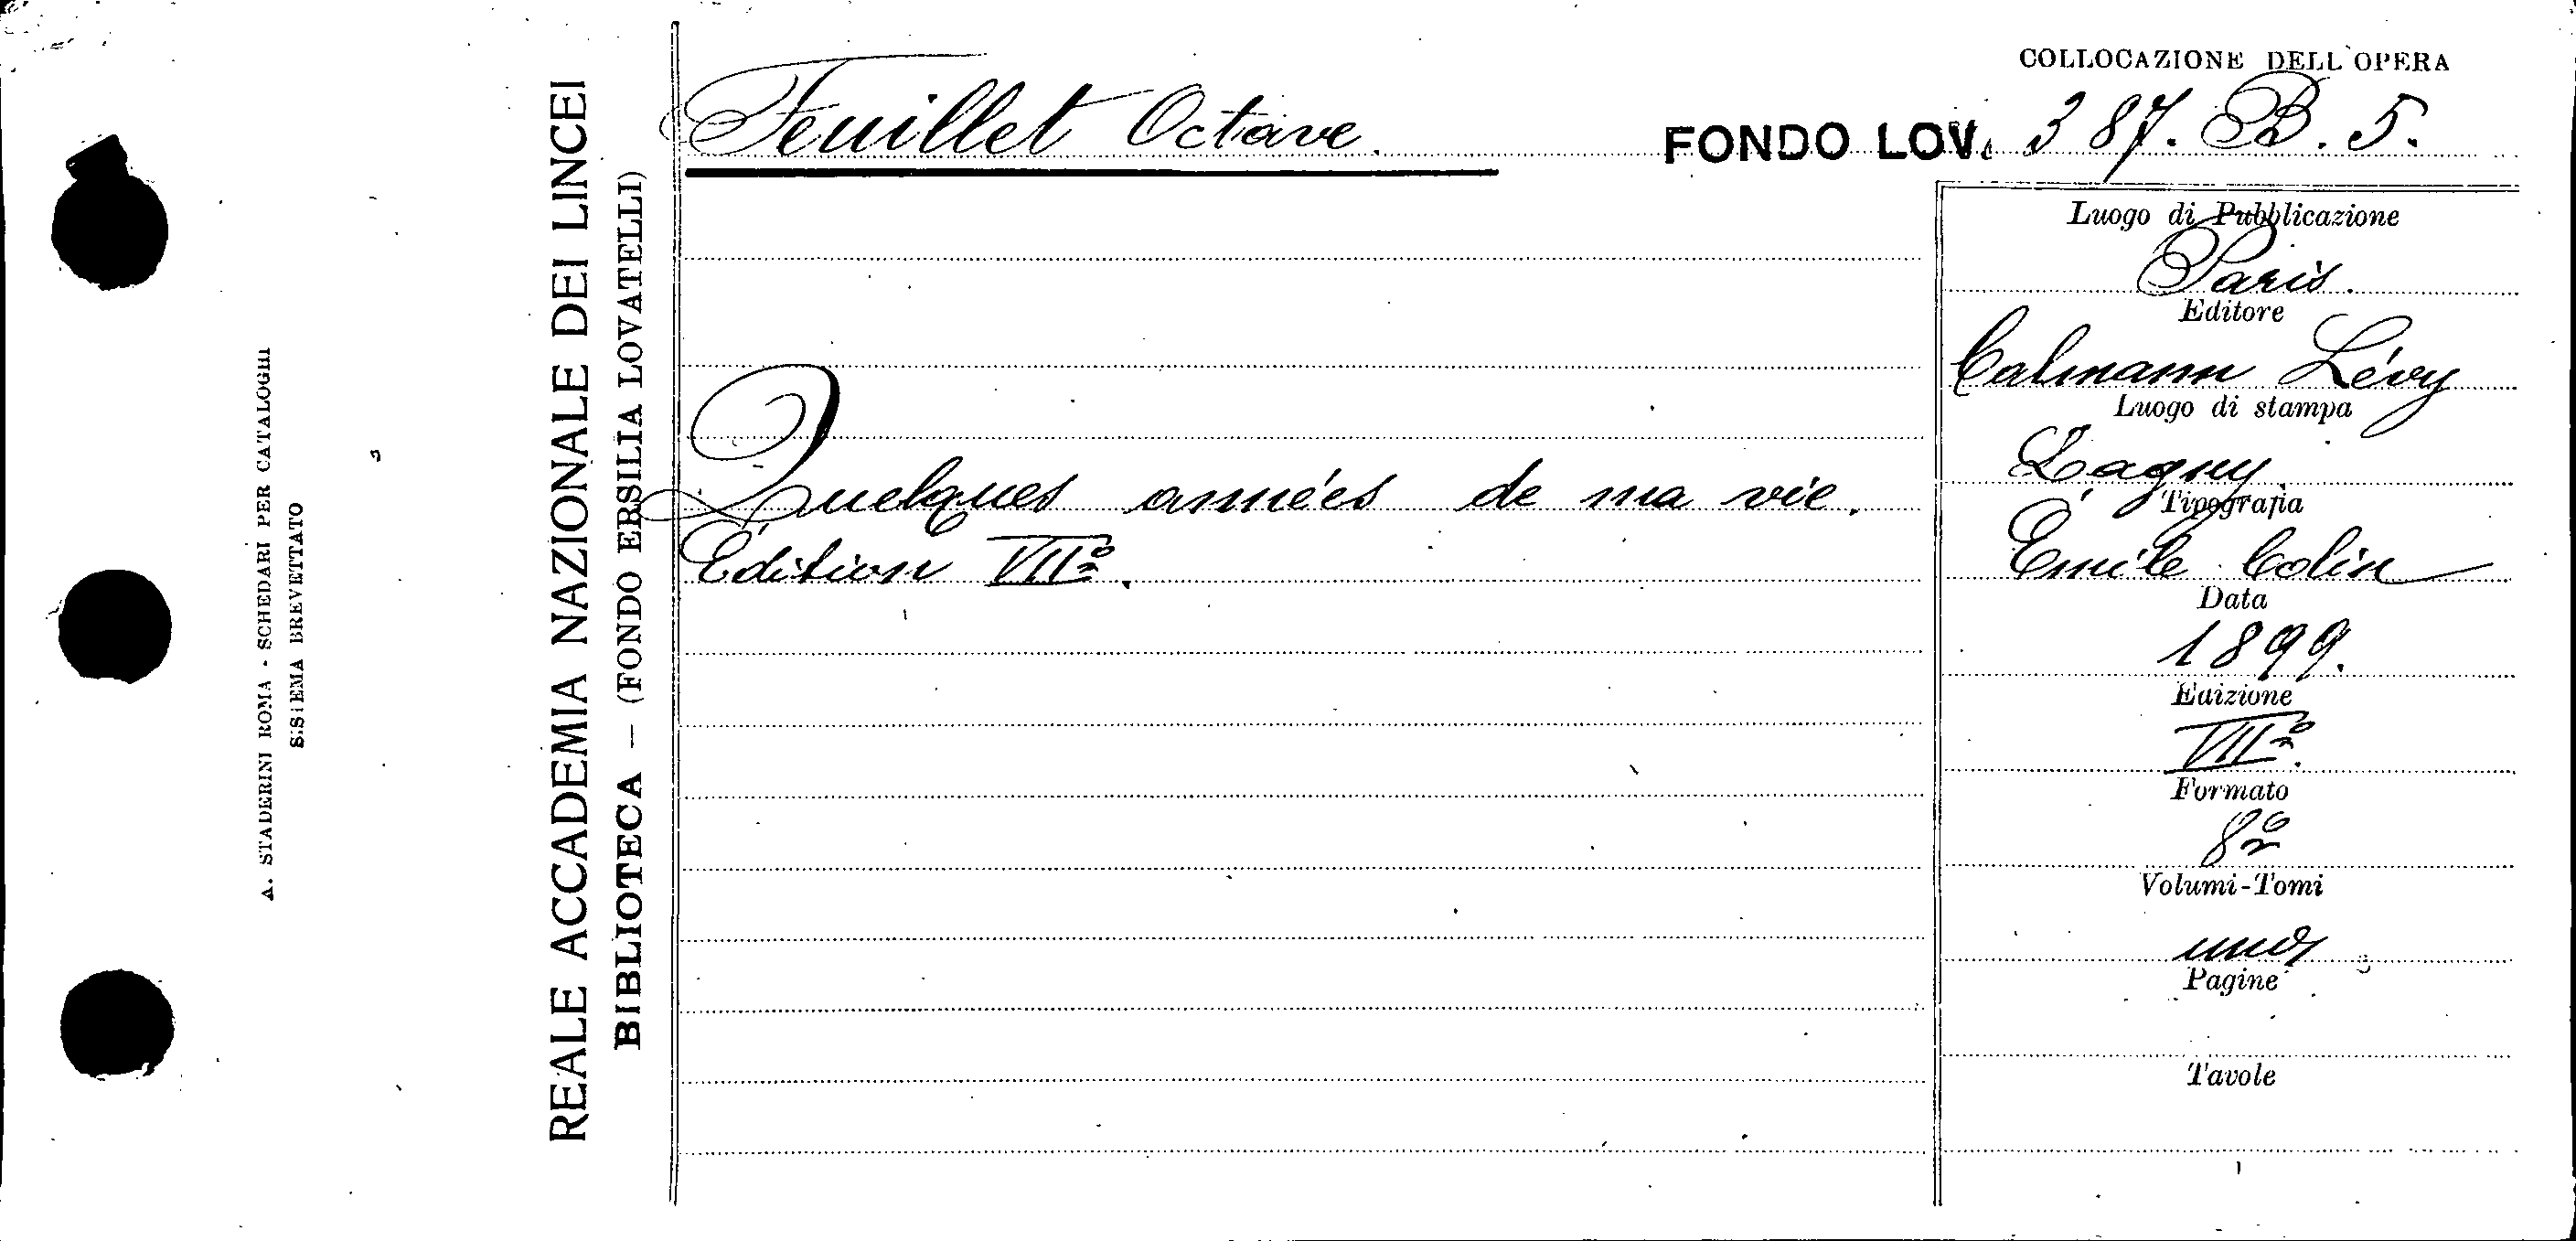 A. STADERINI ROMA - SCHEDARI PER CATALOGHI
SISTEMA BREVETTATO
REALE ACCADEMIA NAZIONALE DEI LINCEI
BIBLIOTECA — (FONDO ERSILIA LOVATELLI)
COLLOCAZIONE DELL'OPERA
Feuillet Octave.
FONDO LOV. 387. B. 5.
Quelques années de ma vie.
Édition VIIª.
Luogo di Pubblicazione
Paris.
Editore
Calmann Lévy
Luogo di stampa
Lagny
Tipografia
Émile Colin
Data
1899.
Edizione
VIIª.
Formato
8º
Volumi-Tomi
uno
Pagine
Tavole